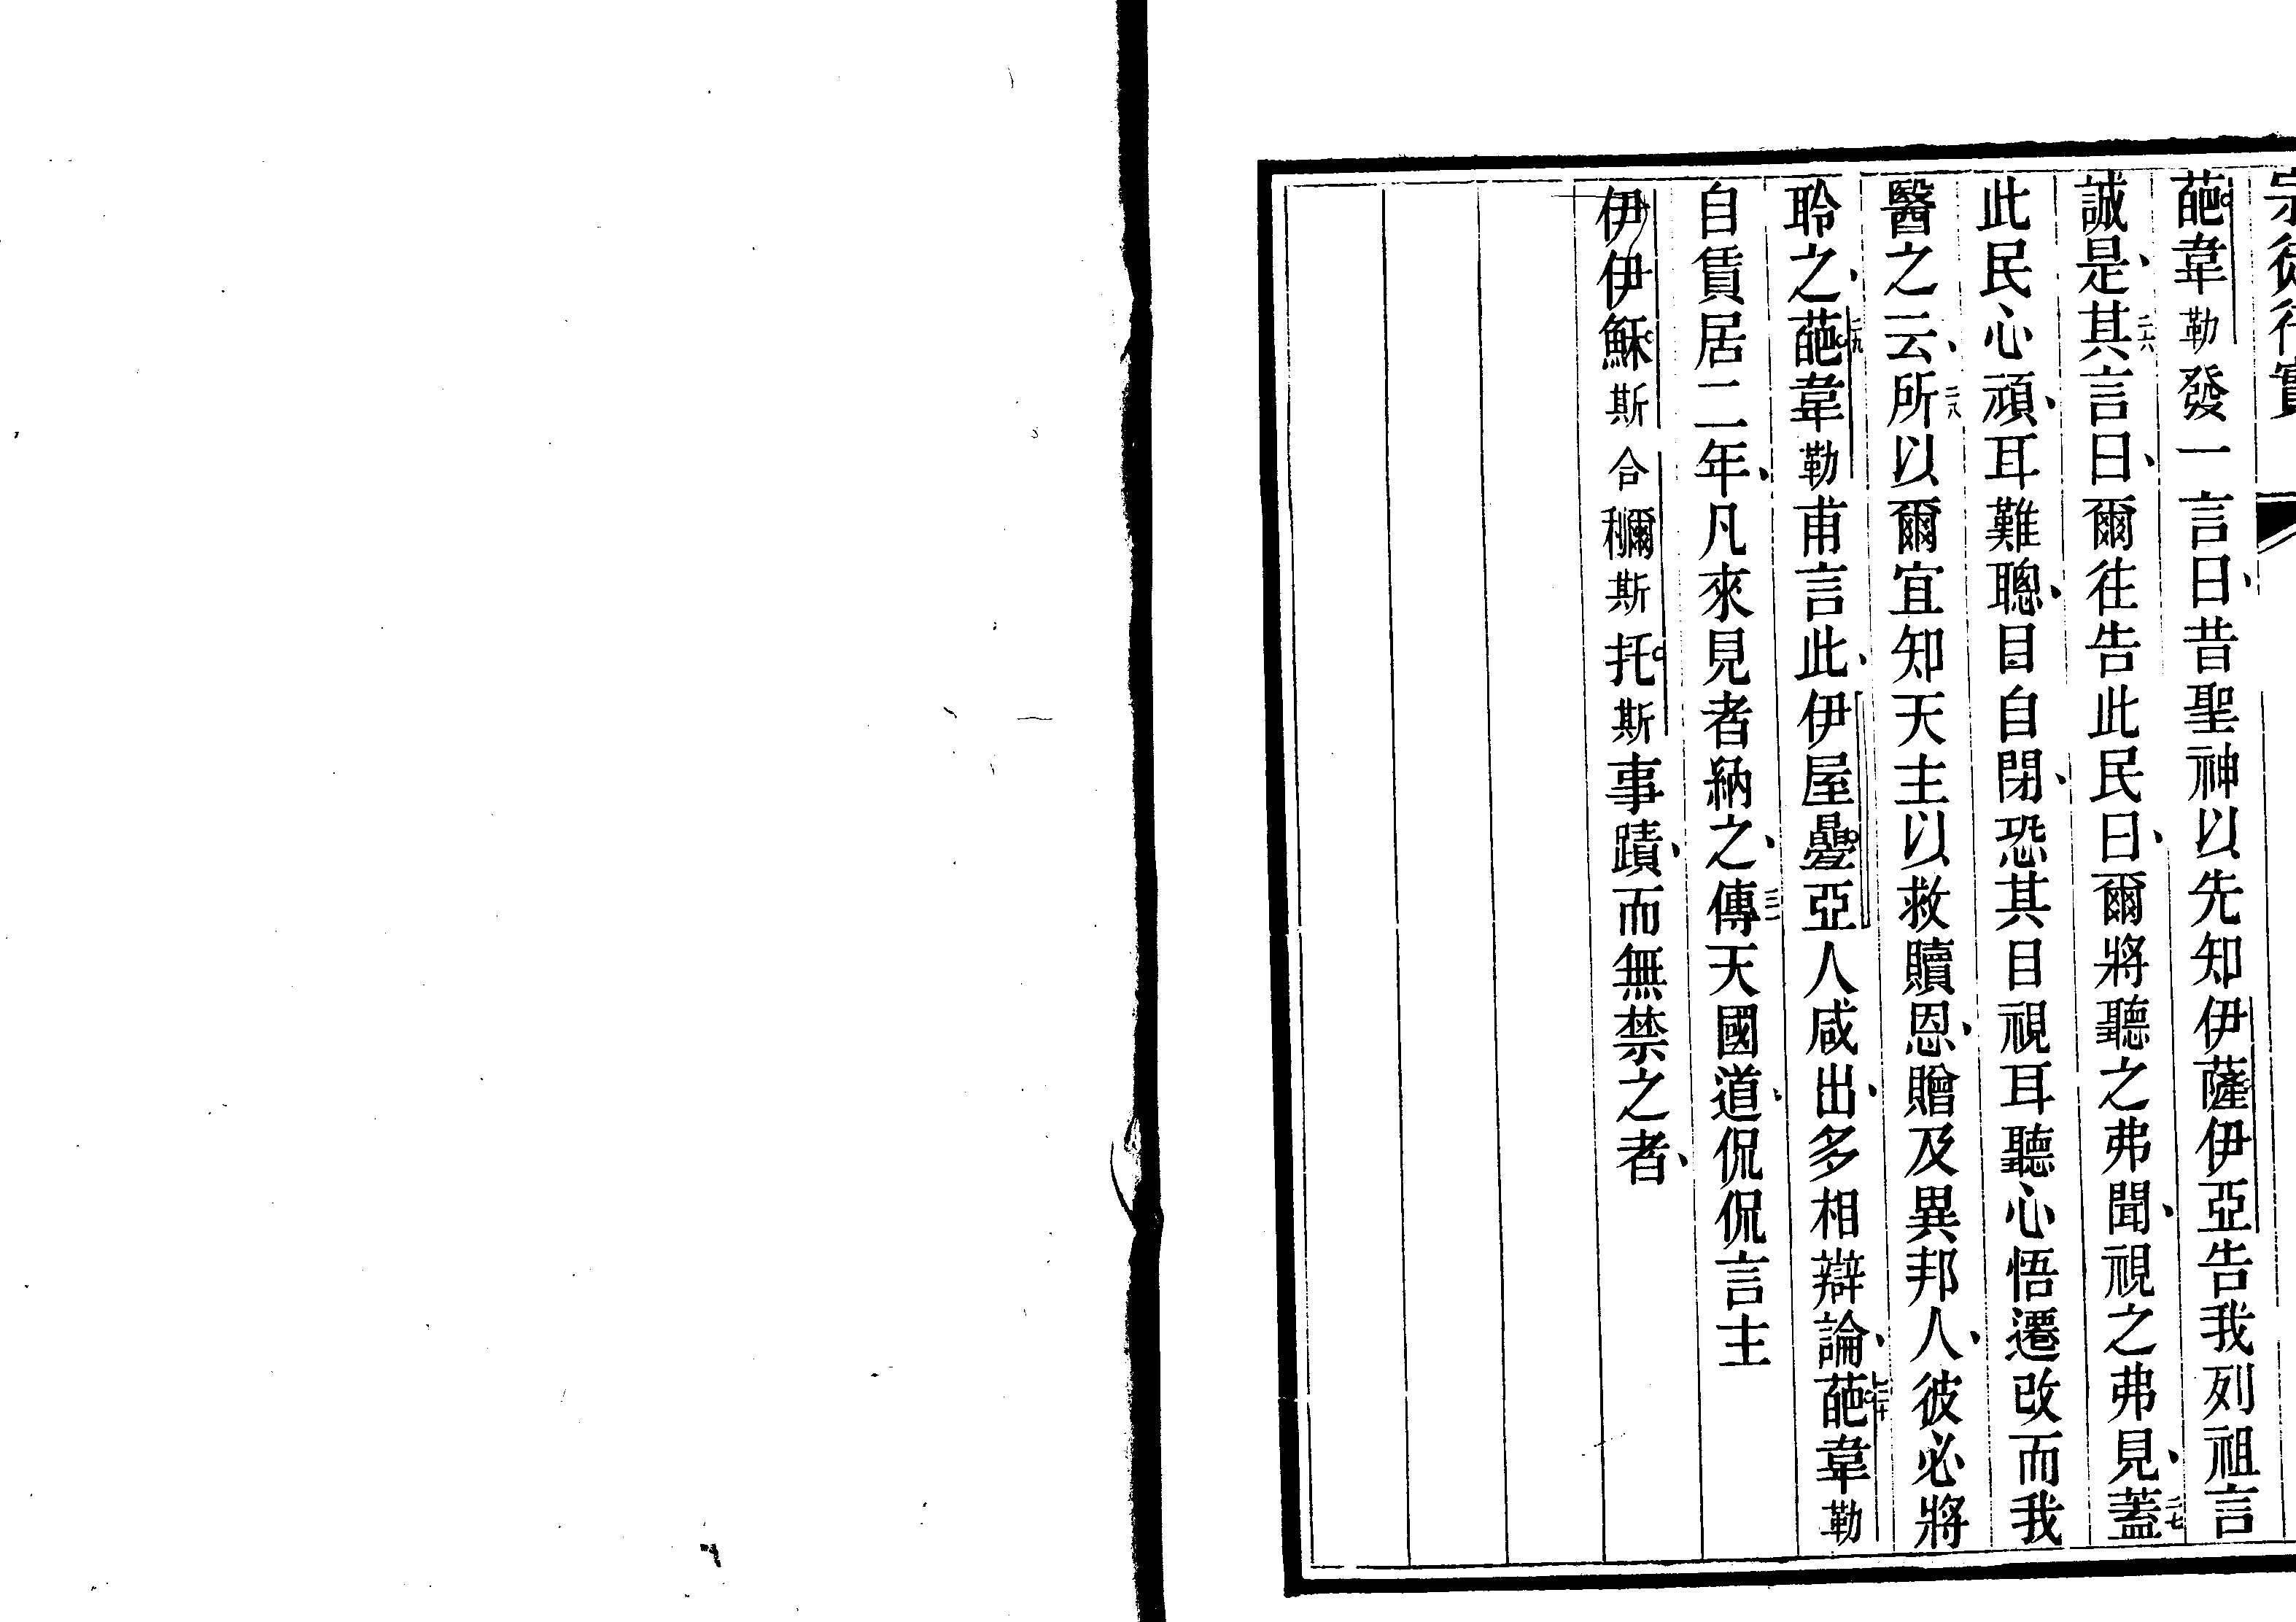 宗徒行實
葩韋勒發一言曰、昔聖神以先知伊薩伊亞告我列祖言
誠是、二六其言曰、爾往告此民曰、爾將聽之弗聞、視之弗見、二七蓋
此民心頑、耳難聰、目自閉、恐其目視耳聽心悟遷改而我
醫之云、二八所以爾宜知天主以救贖恩、贈及異邦人、彼必將
聆之、二九葩韋勒甫言此、伊屋疊亞人咸出、多相辯論、三十葩韋勒
自賃居二年、凡來見者納之、三一傳天國道、侃侃言主
伊伊穌斯合穪斯托斯事蹟、而無禁之者、